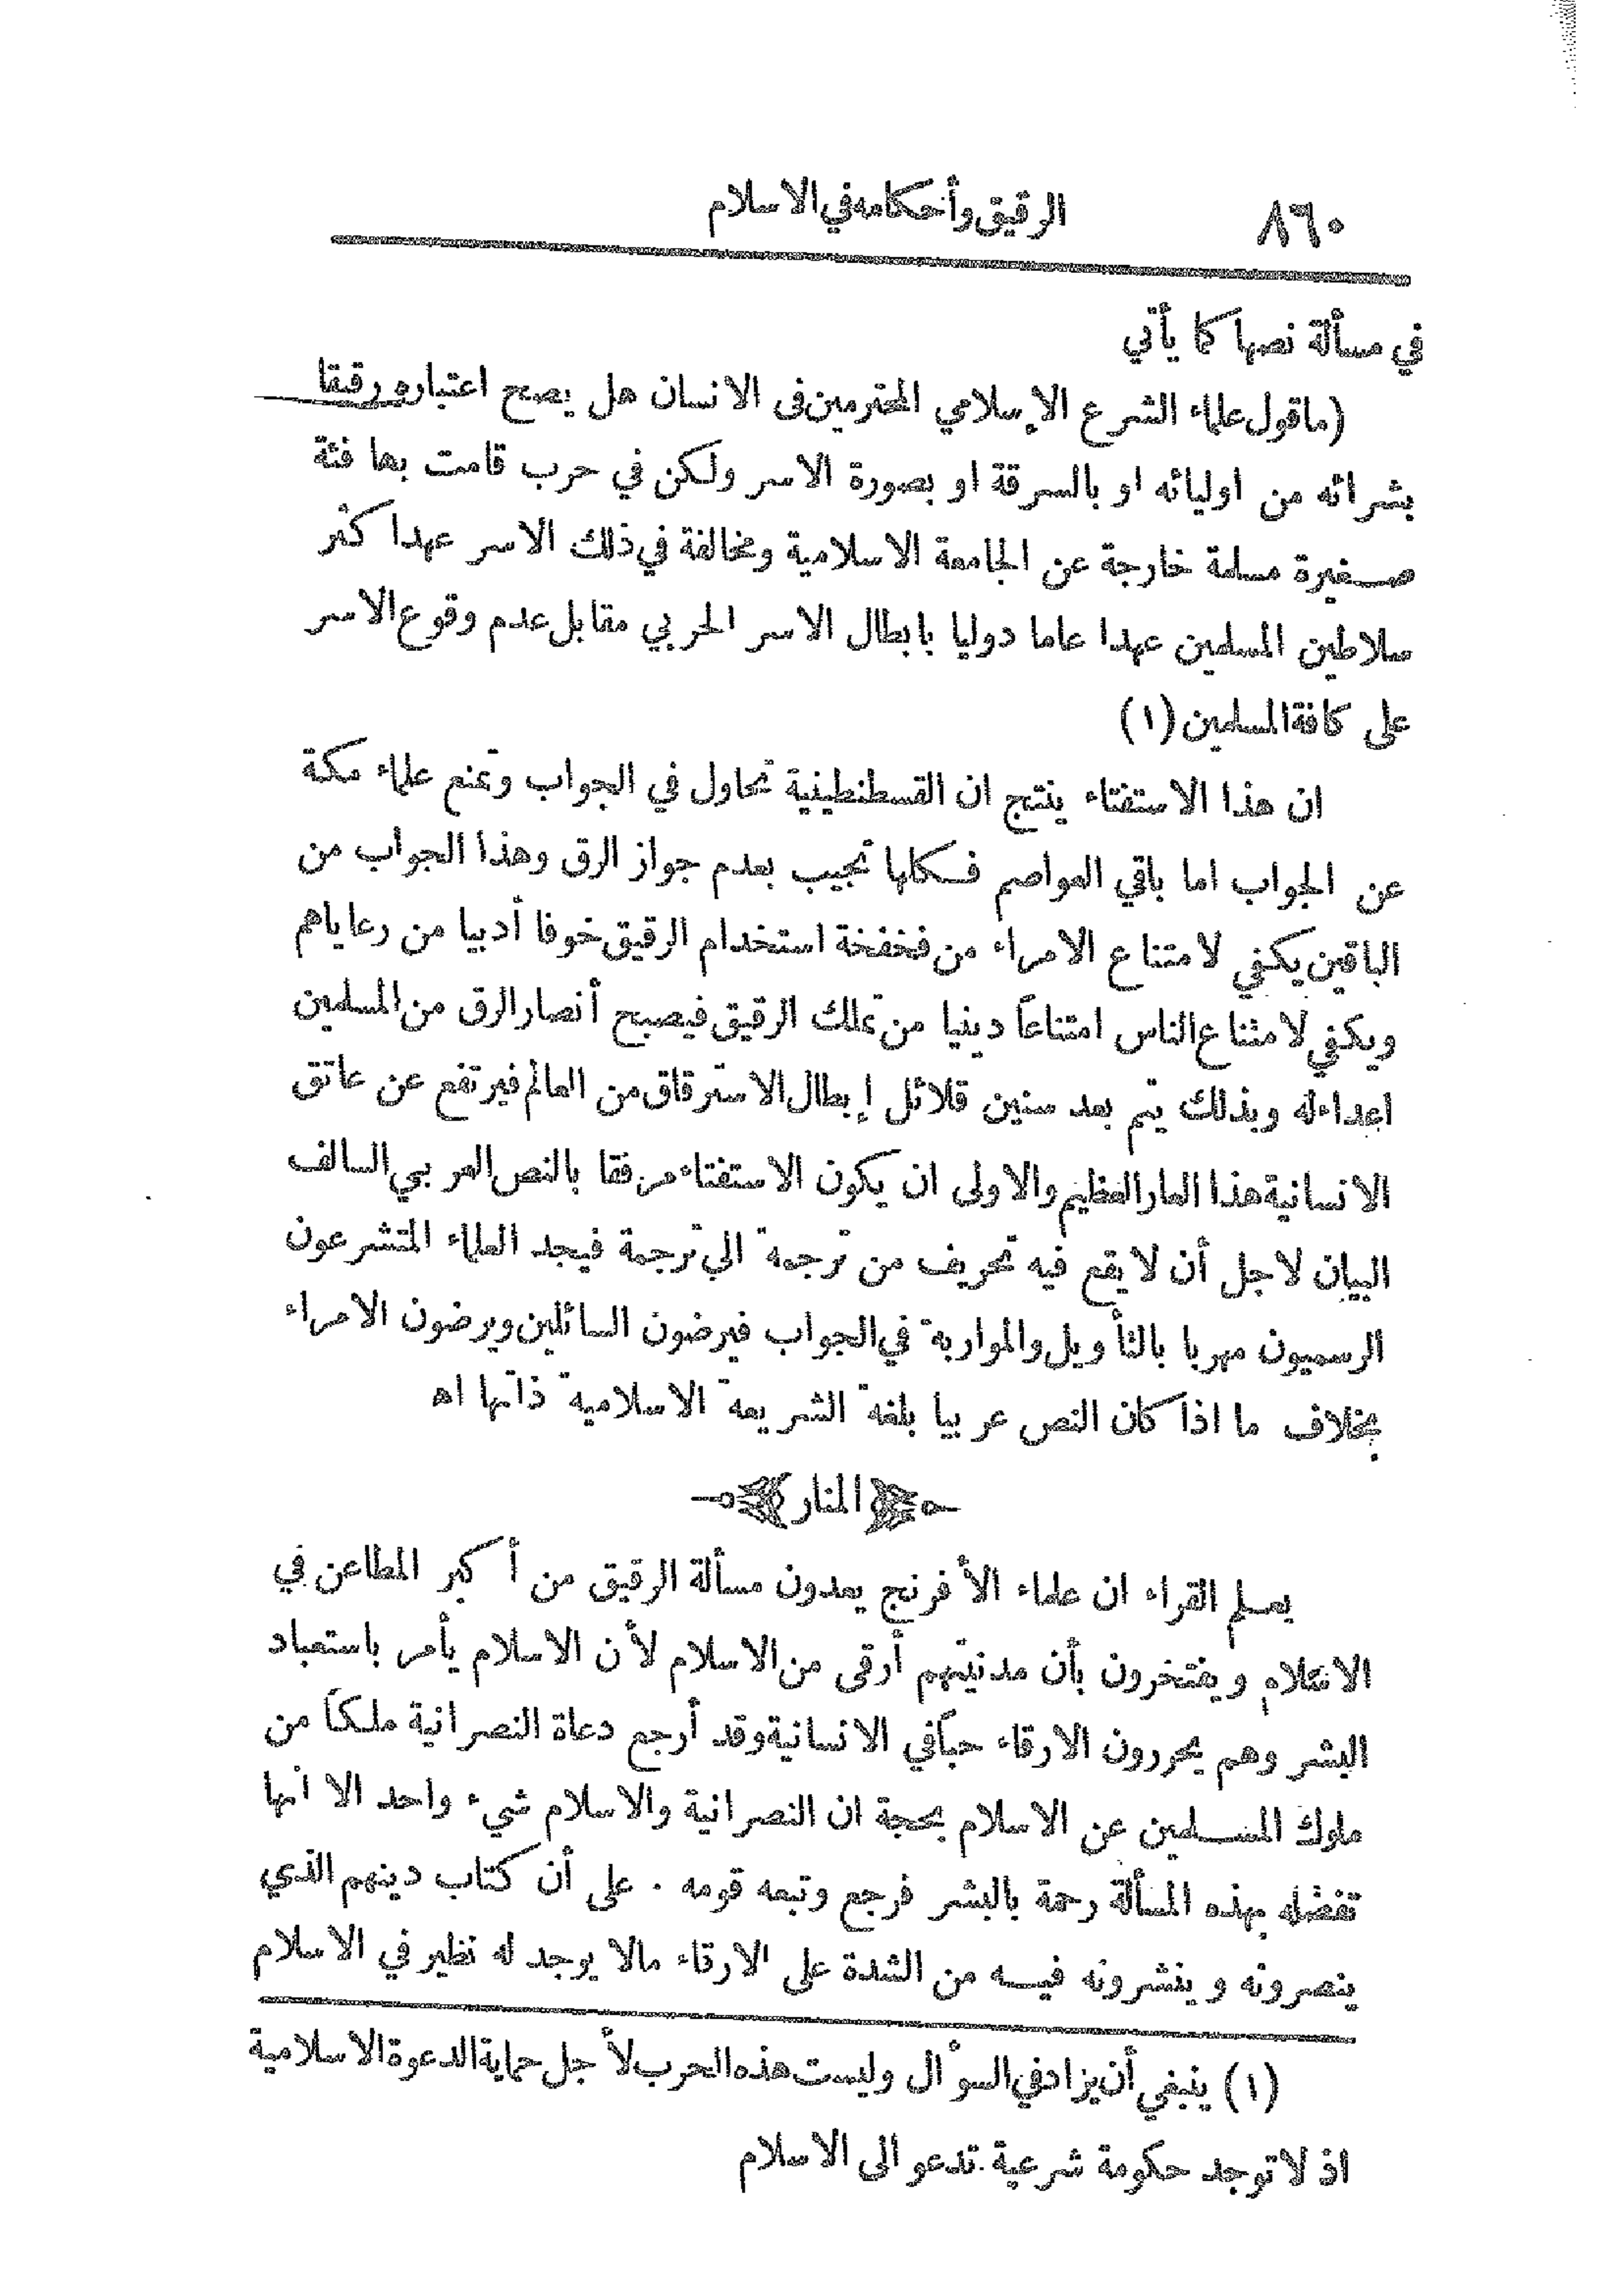 ٨٦٠ الرقيق وأحكامه في الاسلام
في مسألة نصها كما يأتي
(ما قول علماء الشرع الإسلامي المحترمين فى الانسان هل يصح اعتباره رقيقا
بشرائه من اوليائه او بالسرقة او بصورة الاسر ولكن في حرب قامت بها فئة
صغيرة مسلمة خارجة عن الجامعة الاسلامية ومخالفة في ذلك الاسر عهد اكثر
سلاطين المسلمين عهدا عاما دوليا بابطال الاسر الحربي مقابل عدم وقوع الاسر
على كافة المسلمين (١)
ان هذا الاستفتاء ينتج ان القسطنطينية تحاول في الجواب وتمنع علماء مكة
عن الجواب اما باقي العواصم فكلها تجيب بعدم جواز الرق وهذا الجواب من
الباقين يكفي لامتناع الامراء من فخفخة استخدام الرقيق خوفا أدبيا من رعاياهم
ويكفي لامتناع الناس امتناعاً دينيا من تملك الرقيق فيصبح أنصار الرق من المسلمين
اعداء له وبذلك يتم بعد سنين قلائل إبطال الاسترقاق من العالم فيرتفع عن عاتق
الانسانية هذا العار العظيم والاولى ان يكون الاستفتاء مرفقا بالنص العربي السالف
البيان لاجل أن لا يقع فيه تحريف من ترجمة الي ترجمة فيجد العلماء المتشرعون
الرسميون مهربا بالتأويل والمواربة في الجواب فيرضون السائلين ويرضون الامراء
بخلاف ما اذا كان النص عربيا بلغة الشريعة الاسلامية ذاتها اه
المنار
يعلم القراء ان علماء الأفرنج يعدون مسألة الرقيق من أكبر المطاعن في
الاسلام ويفتخرون بأن مدنيتهم أرقى من الاسلام لأن الاسلام يأمر باستعباد
البشر وهم يحررون الارقاء حباً في الانسانية وقد أرجع دعاة النصرانية ملكاً من
ملوك المسلمين عن الاسلام بحجة ان النصرانية والاسلام شيء واحد الا انها
تفضله بهذه المسألة رحمة بالبشر فرجع وتبعه قومه . على أن كتاب دينهم الذي
ينصرونه وينشرونه فيه من الشدة على الارقاء مالا يوجد له نظير في الاسلام
(١) ينبغي أن يزاد في السوأل وليست هذه الحرب لأجل حماية الدعوة الاسلامية
اذ لا توجد حكومة شرعية تدعو الى الاسلام